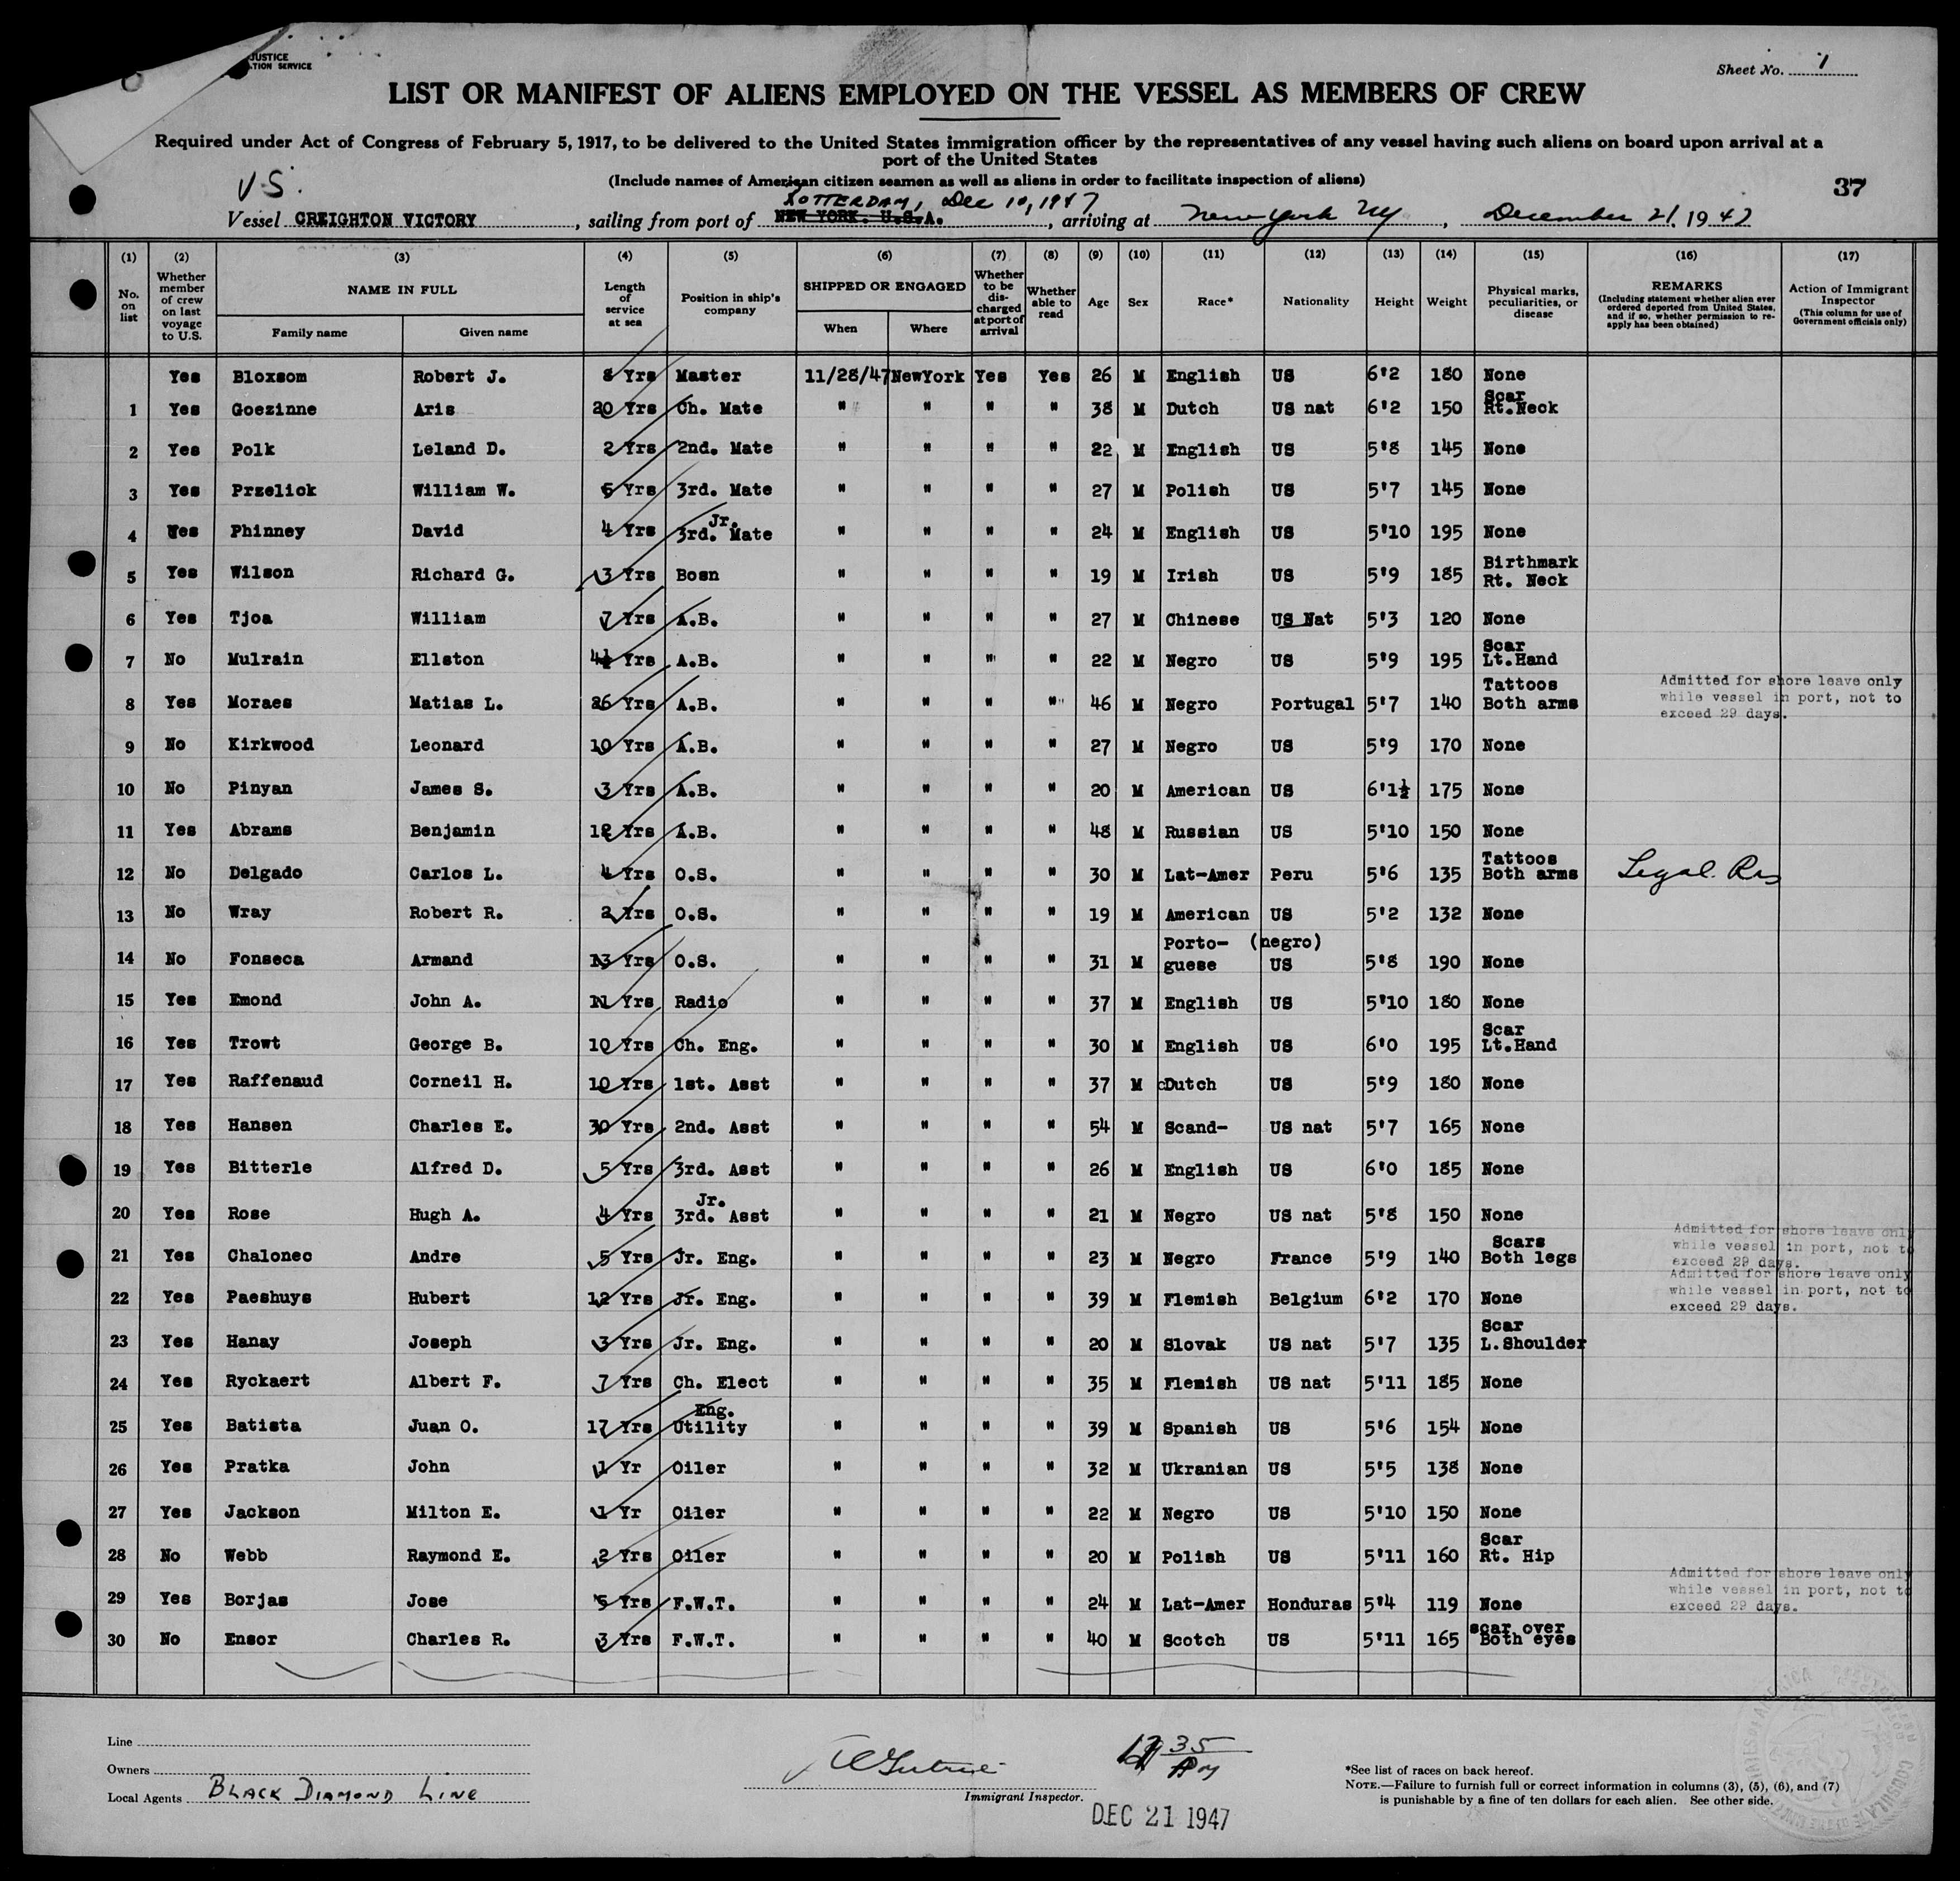 JUSTICE
TION SERVICE
Sheet No. 1
LIST OR MANIFEST OF ALIENS EMPLOYED ON THE VESSEL AS MEMBERS OF CREW
Required under Act of Congress of February 5, 1917, to be delivered to the United States immigration officer by the representatives of any vessel having such aliens on board upon arrival at a
port of the United States
(Include names of American citizen seamen as well as aliens in order to facilitate inspection of aliens)
37
V.S.
ROTTERDAM, Dec 10, 1947
Vessel CREIGHTON VICTORY, sailing from port of NEW YORK. U.S.A., arriving at New York NY, December 21, 1947
(1) No. on list (2) Whether member of crew on last voyage to U.S. (3) NAME IN FULL Family name Given name (4) Length of service at sea (5) Position in ship's company (6) SHIPPED OR ENGAGED When Where (7) Whether to be discharged at port of arrival (8) Whether able to read (9) Age (10) Sex (11) Race* (12) Nationality (13) Height (14) Weight (15) Physical marks, peculiarities, or disease (16) REMARKS (Including statement whether alien ever ordered deported from United States, and if so, whether permission to re-apply has been obtained) (17) Action of Immigrant Inspector (This column for use of Government officials only)
Yes Bloxsom Robert J. 8 Yrs Master 11/28/47 NewYork Yes Yes 26 M English US 6'2 180 None
1 Yes Goezinne Aris 20 Yrs Ch. Mate " " " " 38 M Dutch US nat 6'2 150 Scar Rt.Neck
2 Yes Polk Leland D. 2 Yrs 2nd. Mate " " " " 22 M English US 5'8 145 None
3 Yes Przelick William W. 5 Yrs 3rd. Mate " " " " 27 M Polish US 5'7 145 None
4 Yes Phinney David 4 Yrs Jr. 3rd. Mate " " " " 24 M English US 5'10 195 None
5 Yes Wilson Richard G. 3 Yrs Bosn " " " " 19 M Irish US 5'9 185 Birthmark Rt. Neck
6 Yes Tjoa William 7 Yrs A.B. " " " " 27 M Chinese US Nat 5'3 120 None
7 No Mulrain Ellston 4½ Yrs A.B. " " " " 22 M Negro US 5'9 195 Scar Lt.Hand
8 Yes Moraes Matias L. 26 Yrs A.B. " " " " 46 M Negro Portugal 5'7 140 Tattoos Both arms Admitted for shore leave only while vessel in port, not to exceed 29 days.
9 No Kirkwood Leonard 10 Yrs A.B. " " " " 27 M Negro US 5'9 170 None
10 No Pinyan James S. 3 Yrs A.B. " " " " 20 M American US 6'1½ 175 None
11 Yes Abrams Benjamin 12 Yrs A.B. " " " " 48 M Russian US 5'10 150 None
12 No Delgado Carlos L. 4 Yrs O.S. " " " " 30 M Lat-Amer Peru 5'6 135 Tattoos Both arms Legal. Res
13 No Wray Robert R. 2 Yrs O.S. " " " " 19 M American US 5'2 132 None
14 No Fonseca Armand 13 Yrs O.S. " " " " 31 M Porto- (negro) guese US 5'8 190 None
15 Yes Emond John A. 11 Yrs Radio " " " " 37 M English US 5'10 180 None
16 Yes Trowt George B. 10 Yrs Ch. Eng. " " " " 30 M English US 6'0 195 Scar Lt.Hand
17 Yes Raffenaud Corneil H. 10 Yrs 1st. Asst " " " " 37 M Dutch US 5'9 180 None
18 Yes Hansen Charles E. 30 Yrs 2nd. Asst " " " " 54 M Scand- US nat 5'7 165 None
19 Yes Bitterle Alfred D. 5 Yrs 3rd. Asst " " " " 26 M English US 6'0 185 None
20 Yes Rose Hugh A. 4 Yrs Jr. 3rd. Asst " " " " 21 M Negro US nat 5'8 150 None
21 Yes Chalonec Andre 5 Yrs Jr. Eng. " " " " 23 M Negro France 5'9 140 Scars Both legs Admitted for shore leave only while vessel in port, not to exceed 29 days.
22 Yes Paeshuys Hubert 12 Yrs Jr. Eng. " " " " 39 M Flemish Belgium 6'2 170 None Admitted for shore leave only while vessel in port, not to exceed 29 days.
23 Yes Hanay Joseph 3 Yrs Jr. Eng. " " " " 20 M Slovak US nat 5'7 135 Scar L.Shoulder
24 Yes Ryckaert Albert F. 7 Yrs Ch. Elect " " " " 35 M Flemish US nat 5'11 185 None
25 Yes Batista Juan O. 17 Yrs Eng. Utility " " " " 39 M Spanish US 5'6 154 None
26 Yes Pratka John 1 Yr Oiler " " " " 32 M Ukranian US 5'5 138 None
27 Yes Jackson Milton E. 1 Yr Oiler " " " " 22 M Negro US 5'10 150 None
28 No Webb Raymond E. 2 Yrs Oiler " " " " 20 M Polish US 5'11 160 Scar Rt. Hip
29 Yes Borjas Jose 5 Yrs F.W.T. " " " " 24 M Lat-Amer Honduras 5'4 119 None Admitted for shore leave only while vessel in port, not to exceed 29 days.
30 No Ensor Charles R. 3 Yrs F.W.T. " " " " 40 M Scotch US 5'11 165 scar over Both eyes
Line
Owners
Local Agents BLACK DIAMOND LINE
Immigrant Inspector.
35
DEC 21 1947
*See list of races on back hereof.
NOTE.—Failure to furnish full or correct information in columns (3), (5), (6), and (7)
is punishable by a fine of ten dollars for each alien. See other side.